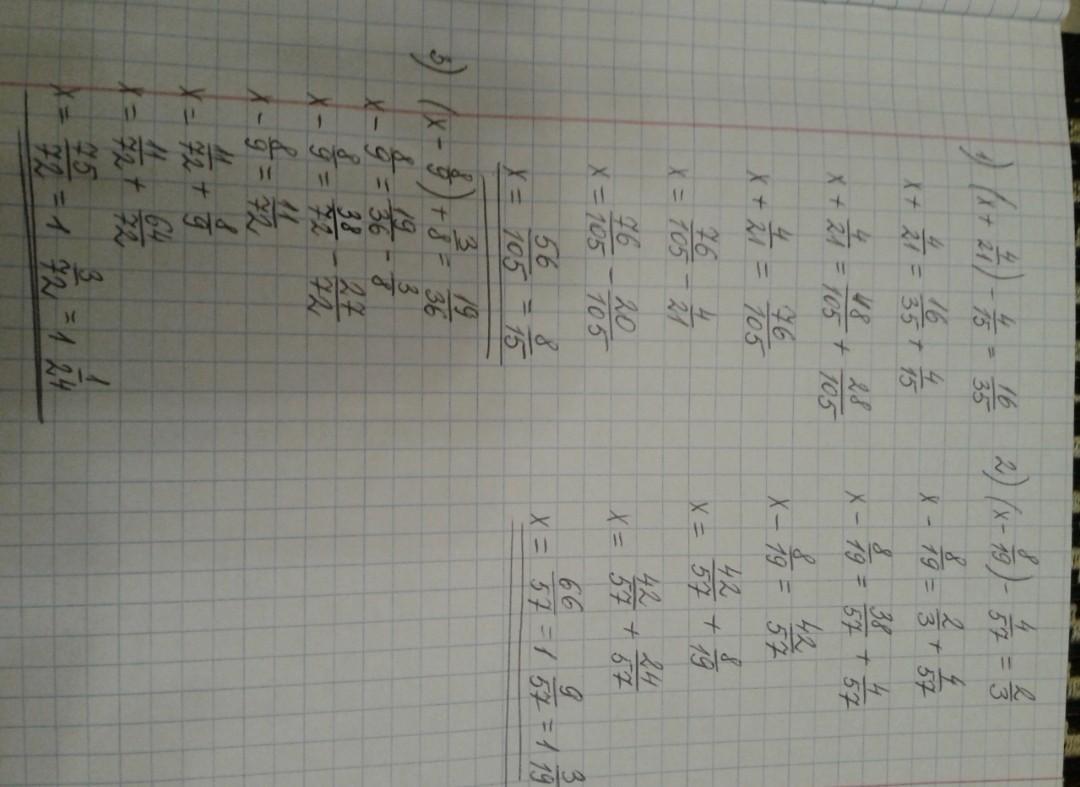 1) (x + 4/21) - 4/15 = 16/35
x + 4/21 = 16/35 + 4/15
x + 4/21 = 48/105 + 28/105
x + 4/21 = 76/105
x = 76/105 - 4/21
x = 76/105 - 20/105
x = 56/105 = 8/15
2) (x - 8/19) - 4/57 = 2/3
x - 8/19 = 2/3 + 4/57
x - 8/19 = 38/57 + 4/57
x - 8/19 = 42/57
x = 42/57 + 8/19
x = 42/57 + 24/57
x = 66/57 = 1 9/57 = 1 3/19
3) (x - 8/9) + 3/8 = 19/36
x - 8/9 = 19/36 - 3/8
x - 8/9 = 38/72 - 27/72
x - 8/9 = 11/72
x = 11/72 + 8/9
x = 11/72 + 64/72
x = 75/72 = 1 3/72 = 1 1/24